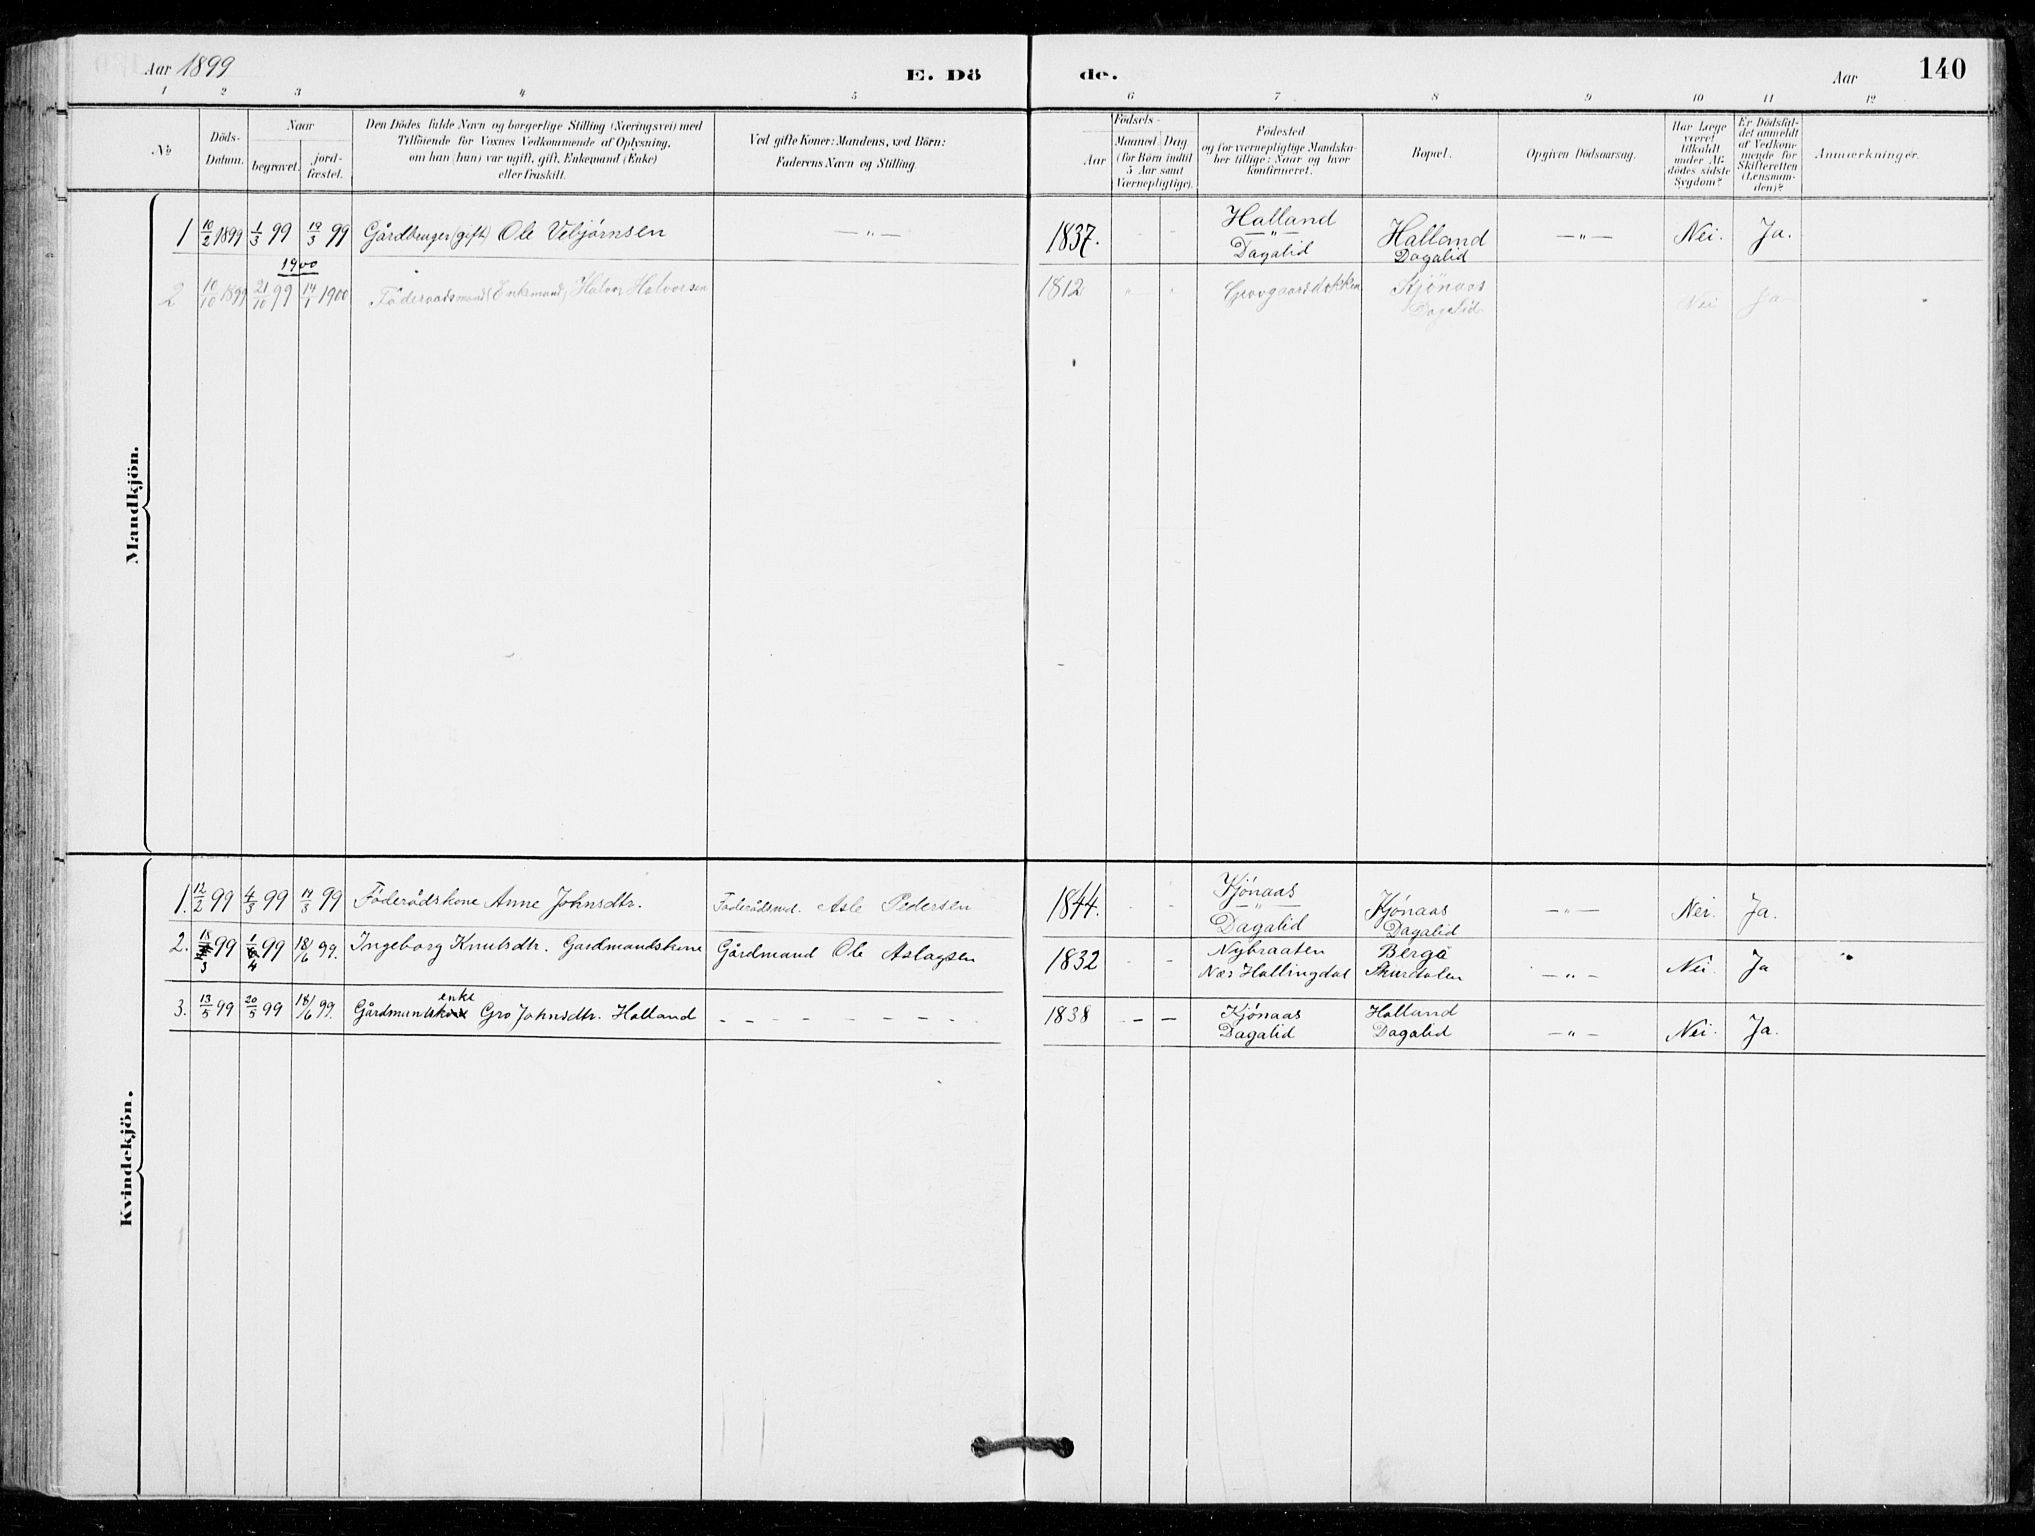 Aar 1899
E. Dö
de.
Aar
140
1 2 3 4 5 6 7 8 9 10 11 12
No
Döds-
Datum.
Naar
begravet.
jord-
fæstet.
Den Dödes fulde Navn og borgerlige Stilling (Næringsvei) med
Tilföiende for Voxnes Vedkommende af Oplysning,
om han (hun) var ugift, gift, Enkemand (Enke)
eller fraskilt.
Ved gifte Koner: Mandens, ved Börn:
Faderens Navn og Stilling.
Födsels-
Aar
Maaned Dag
(for Börn indtil
5 Aar samt
Værnepligtige).
Födested
og for værnepligtige Mandska-
ber tillige: Naar og hvor
konfirmeret.
Bopæl.
Opgiven Dödsaarsag.
Har Læge
været
tilkaldt
under Af-
dödes sidste
Sygdom?
Er Dödsfal-
det anmeldt
af Vedkom-
mende for
Skifteretten
(Lensman-
den)?
Anmærkninger.
Mandkjön.
1 10/2 1899 1/3 99 19/3 99 Gårdbruger (gift) Ole Vebjørnsen — " — 1837. - - Halland — " — Nei. Ja.
Dagalid Halland
Dagalid
1900
2 10/10 1899 21/10 99 14/1 1900 Föderaadsmand (Enkemand) Halvor Halvorsen 1812 " " Kjönaas Nei Ja
Dagalid
Kvindekjön.
1. 12/2 99 4/3 99 19/3 99 Föderådskone Anne Johnsdtr. Föderådsmd. Asle Pedersen 1844. - - Kjónaas Kjónaas — " — Nei. Ja.
— " —
Dagalid Dagalid
2. 18/3 99 1/4 99 18/6 99. Ingeborg Knutsdtr. Gardmandskone Gårdmand Ole Aslagsen 1832 - - Nybraaten Berge — " — Nei. Ja "
Næs Hallingdal Skurdalen
enke
3. 13/5 99 20/5 99 18/6 99. Gårdmands Gro Johnsdtr. Halland - - - - - - - - 1838 - - Kjónaas Halland — " — Nei. Ja.
Dagalid Dagalid